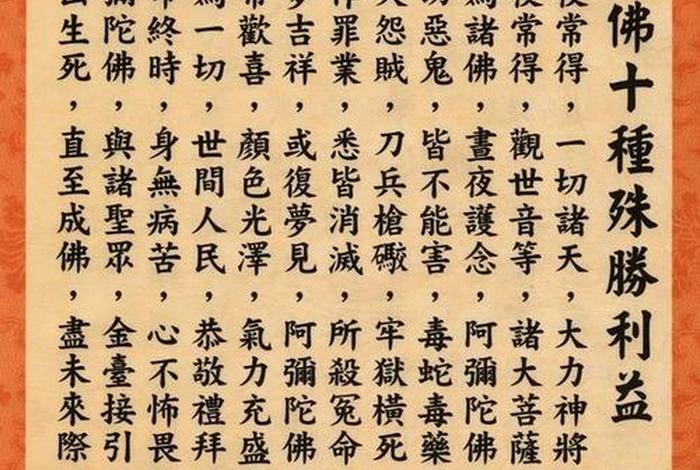 佛十種殊勝利益
常得，一切諸天，大力神將
常得，觀世音等，諸大菩薩
諸佛，晝夜護念，阿彌陀佛
惡鬼，皆不能害，毒蛇毒藥
怨賊，刀兵槍礮，牢獄橫死
罪業，悉皆消滅，所殺冤命
吉祥，或復夢見，阿彌陀佛
歡喜，顏色光澤，氣力充盛
一切，世間人民，恭敬禮拜
終時，身無病苦，心不怖畏
陀佛，與諸聖眾，金臺接引
生死，直至成佛，盡未來際